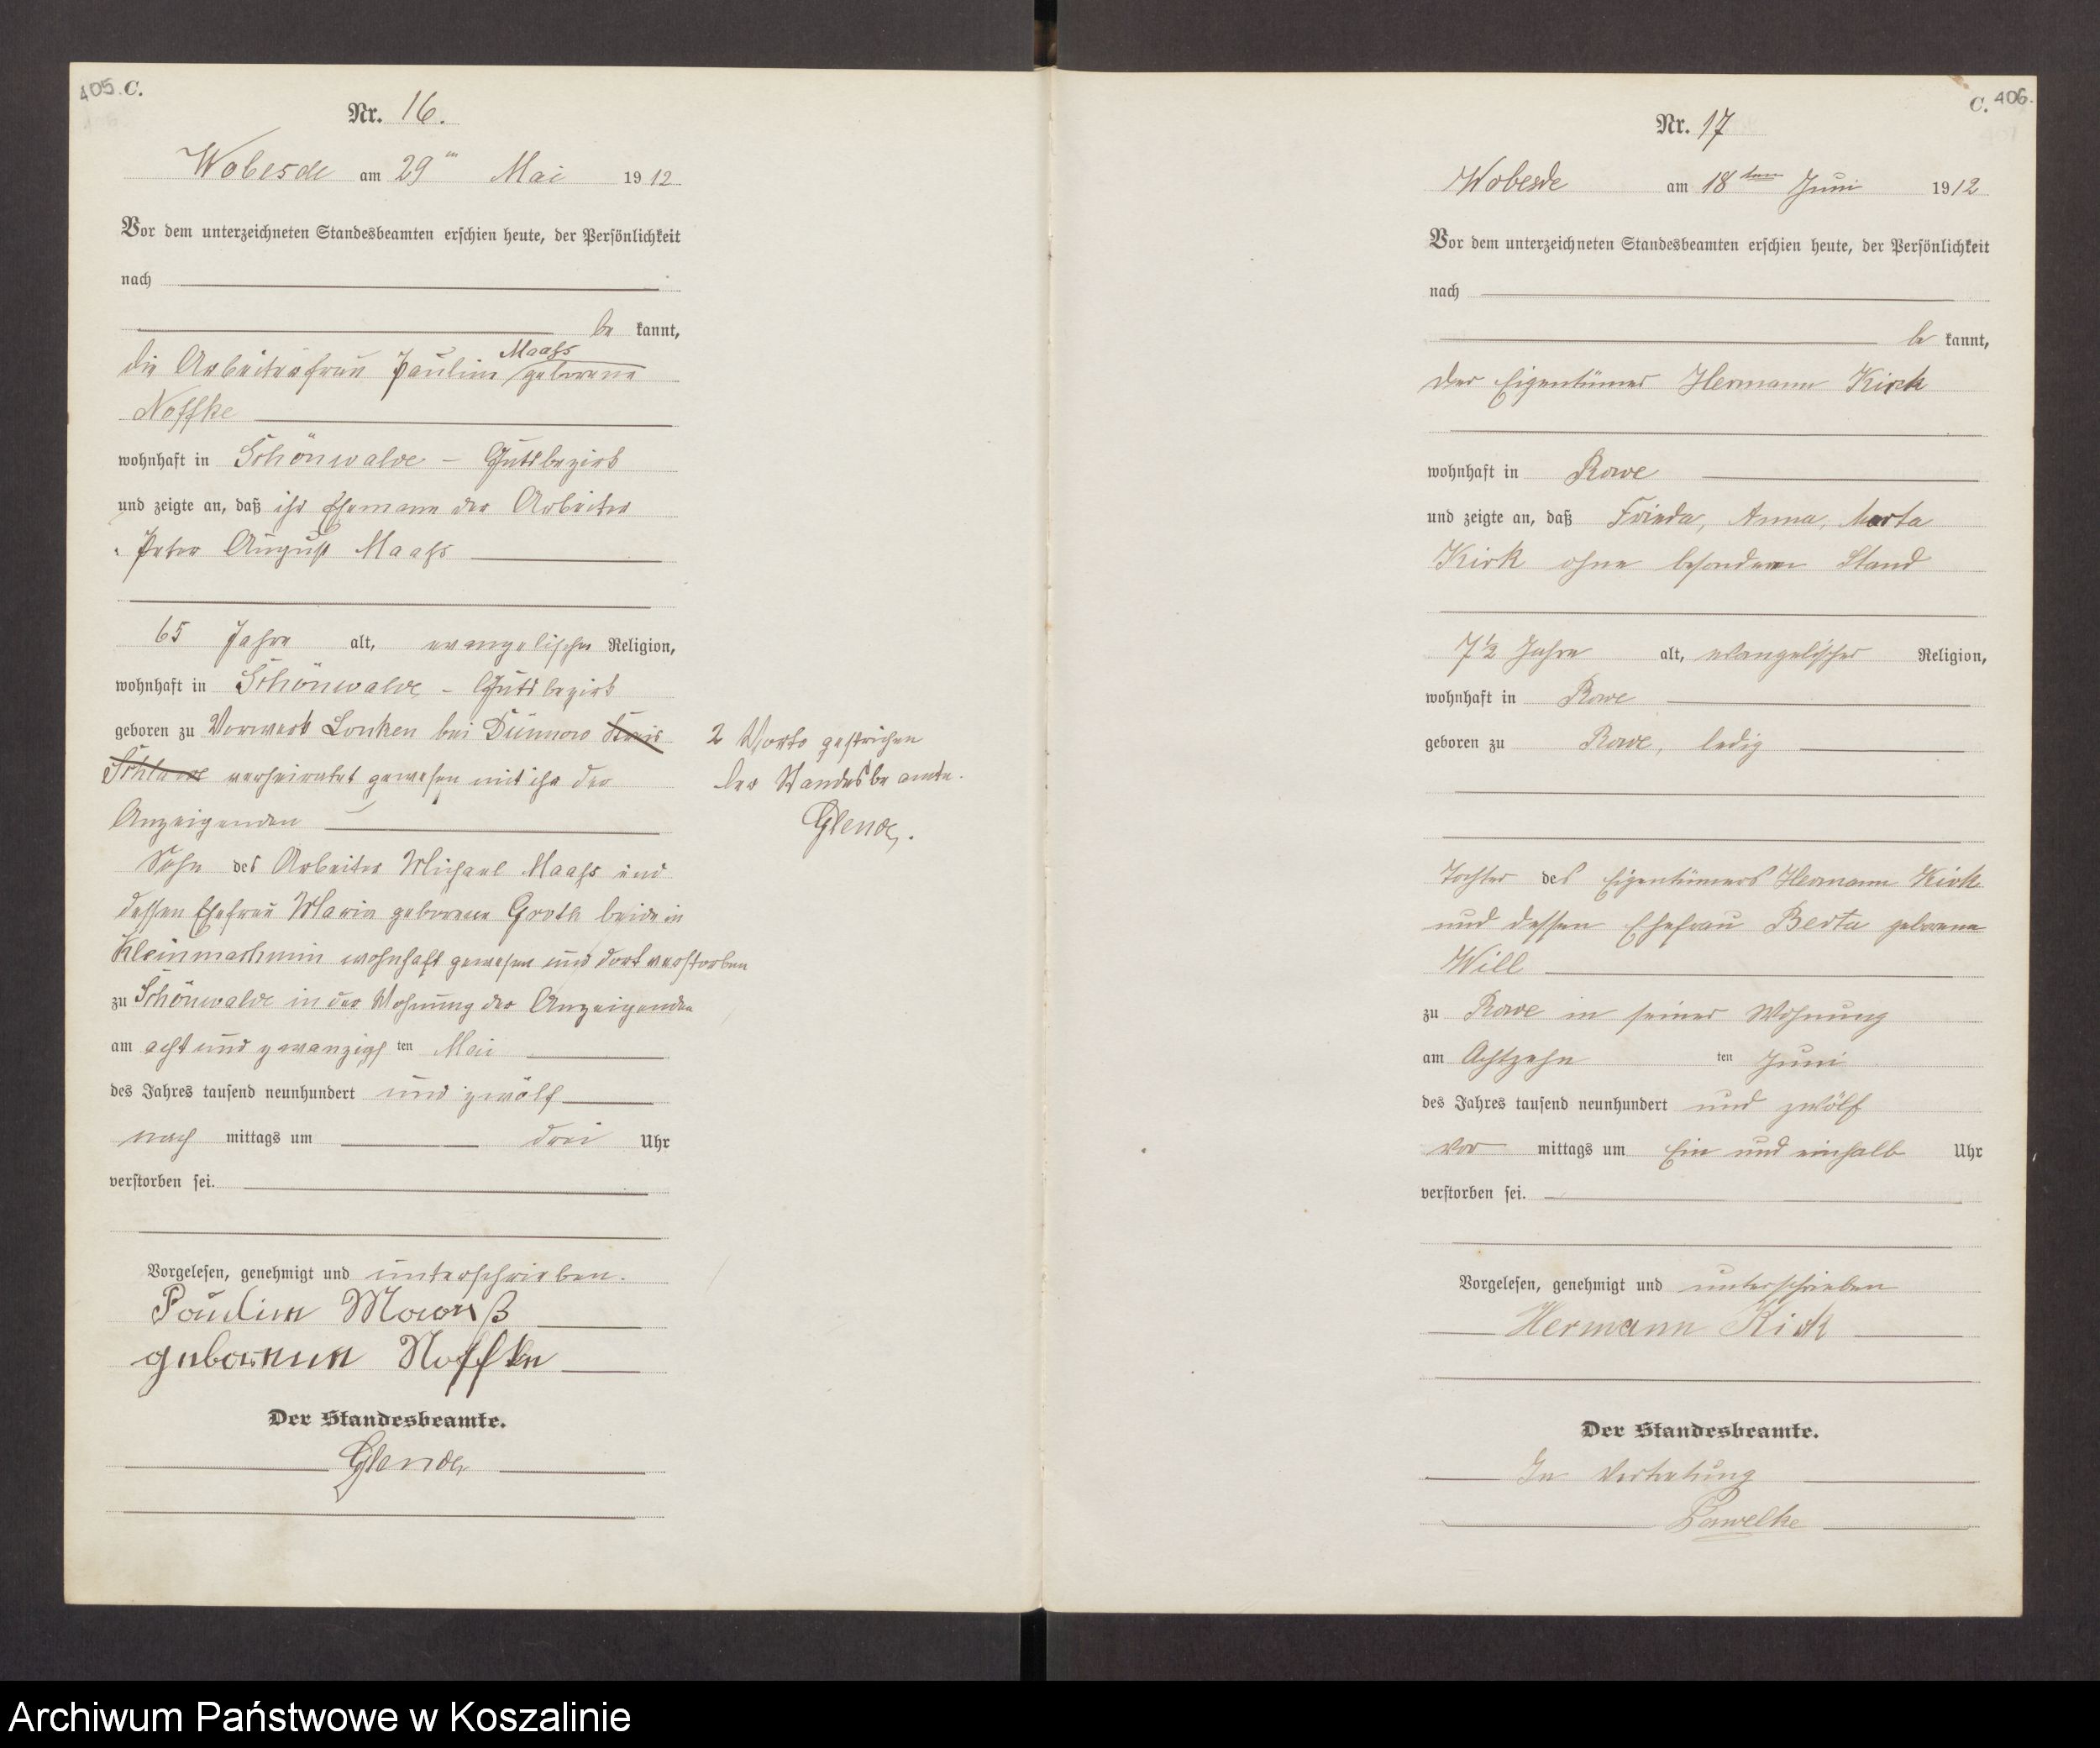 405. C.
Nr. 16.
Wobesde am 29ten Mai 1912
Vor dem unterzeichneten Standesbeamten erschien heute, der Persönlichkeit
nach
be kannt,
Maaß
die Arbeiterfrau Pauline geborene
Noffke
wohnhaft in Schönwalde - Gutsbezirk
und zeigte an, daß ihr Ehemann der Arbeiter
Peter August Maaß
65 Jahre alt, evangelischer Religion,
wohnhaft in Schönwalde - Gutsbezirk
geboren zu Vorwerk Lonken bei Dünnow Kreis
Schlawe verheiratet gewesen mit ihr der
Anzeigenden
Sohn des Arbeiter Michael Maaß und
dessen Ehefrau Maria geborene Groth beide in
Kleinmachmin wohnhaft gewesen und dort verstorben
zu Schönwalde in der Wohnung der Anzeigenden
am acht und zwanzigs ten Mai
des Jahres tausend neunhundert und zwölf
nach mittags um drei Uhr
verstorben sei.
Vorgelesen, genehmigt und unterschrieben.
Pauline Maaß
geborene Noffke
Der Standesbeamte.
Glende
2 Worte gestrichen
der Standesbeamte.
Glende.
C. 406.
Nr. 17
Wobesde am 18ten Juni 1912
Vor dem unterzeichneten Standesbeamten erschien heute, der Persönlichkeit
nach
be kannt,
der Eigentümer Hermann Kirk
wohnhaft in Rowe
und zeigte an, daß Frieda, Anna, Marta
Kirk ohne besonderen Stand
7½ Jahre alt, evangelischer Religion,
wohnhaft in Rowe
geboren zu Rowe, ledig
Tochter des Eigentümers Hermann Kirk
und dessen Ehefrau Berta geborene
Will
zu Rowe in seiner Wohnung
am Achtzehn ten Juni
des Jahres tausend neunhundert und zwölf
vor mittags um Ein und einhalb Uhr
verstorben sei.
Vorgelesen, genehmigt und unterschrieben
Hermann Kirk
Der Standesbeamte.
In Vertretung
Pawelke
Archiwum Państwowe w Koszalinie